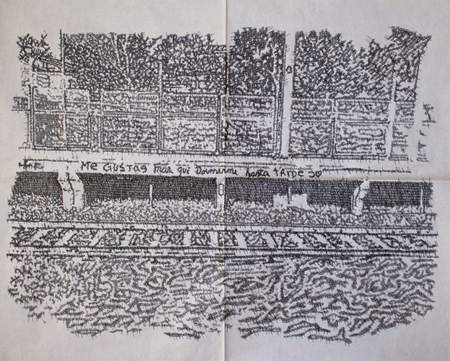 ME GUSTAS MÁS qUE Dormirme hasta tARDE